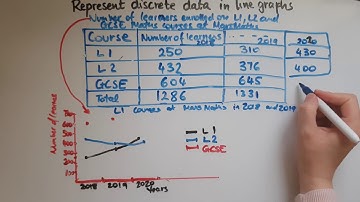 Represent discrete data in line graphs
Number of learners enrolled one L1, L2 and
GCSE Maths courses at MarsMaths
Course Number of learners 2018 2019 2020
L1 250 310 430
L2 432 376 400
GCSE 604 645
Total 1286 1331
L1 courses at MarsMaths in 2018 and 2019
Number of learners
L1
L2
GCSE
2018 2019 2020
Years